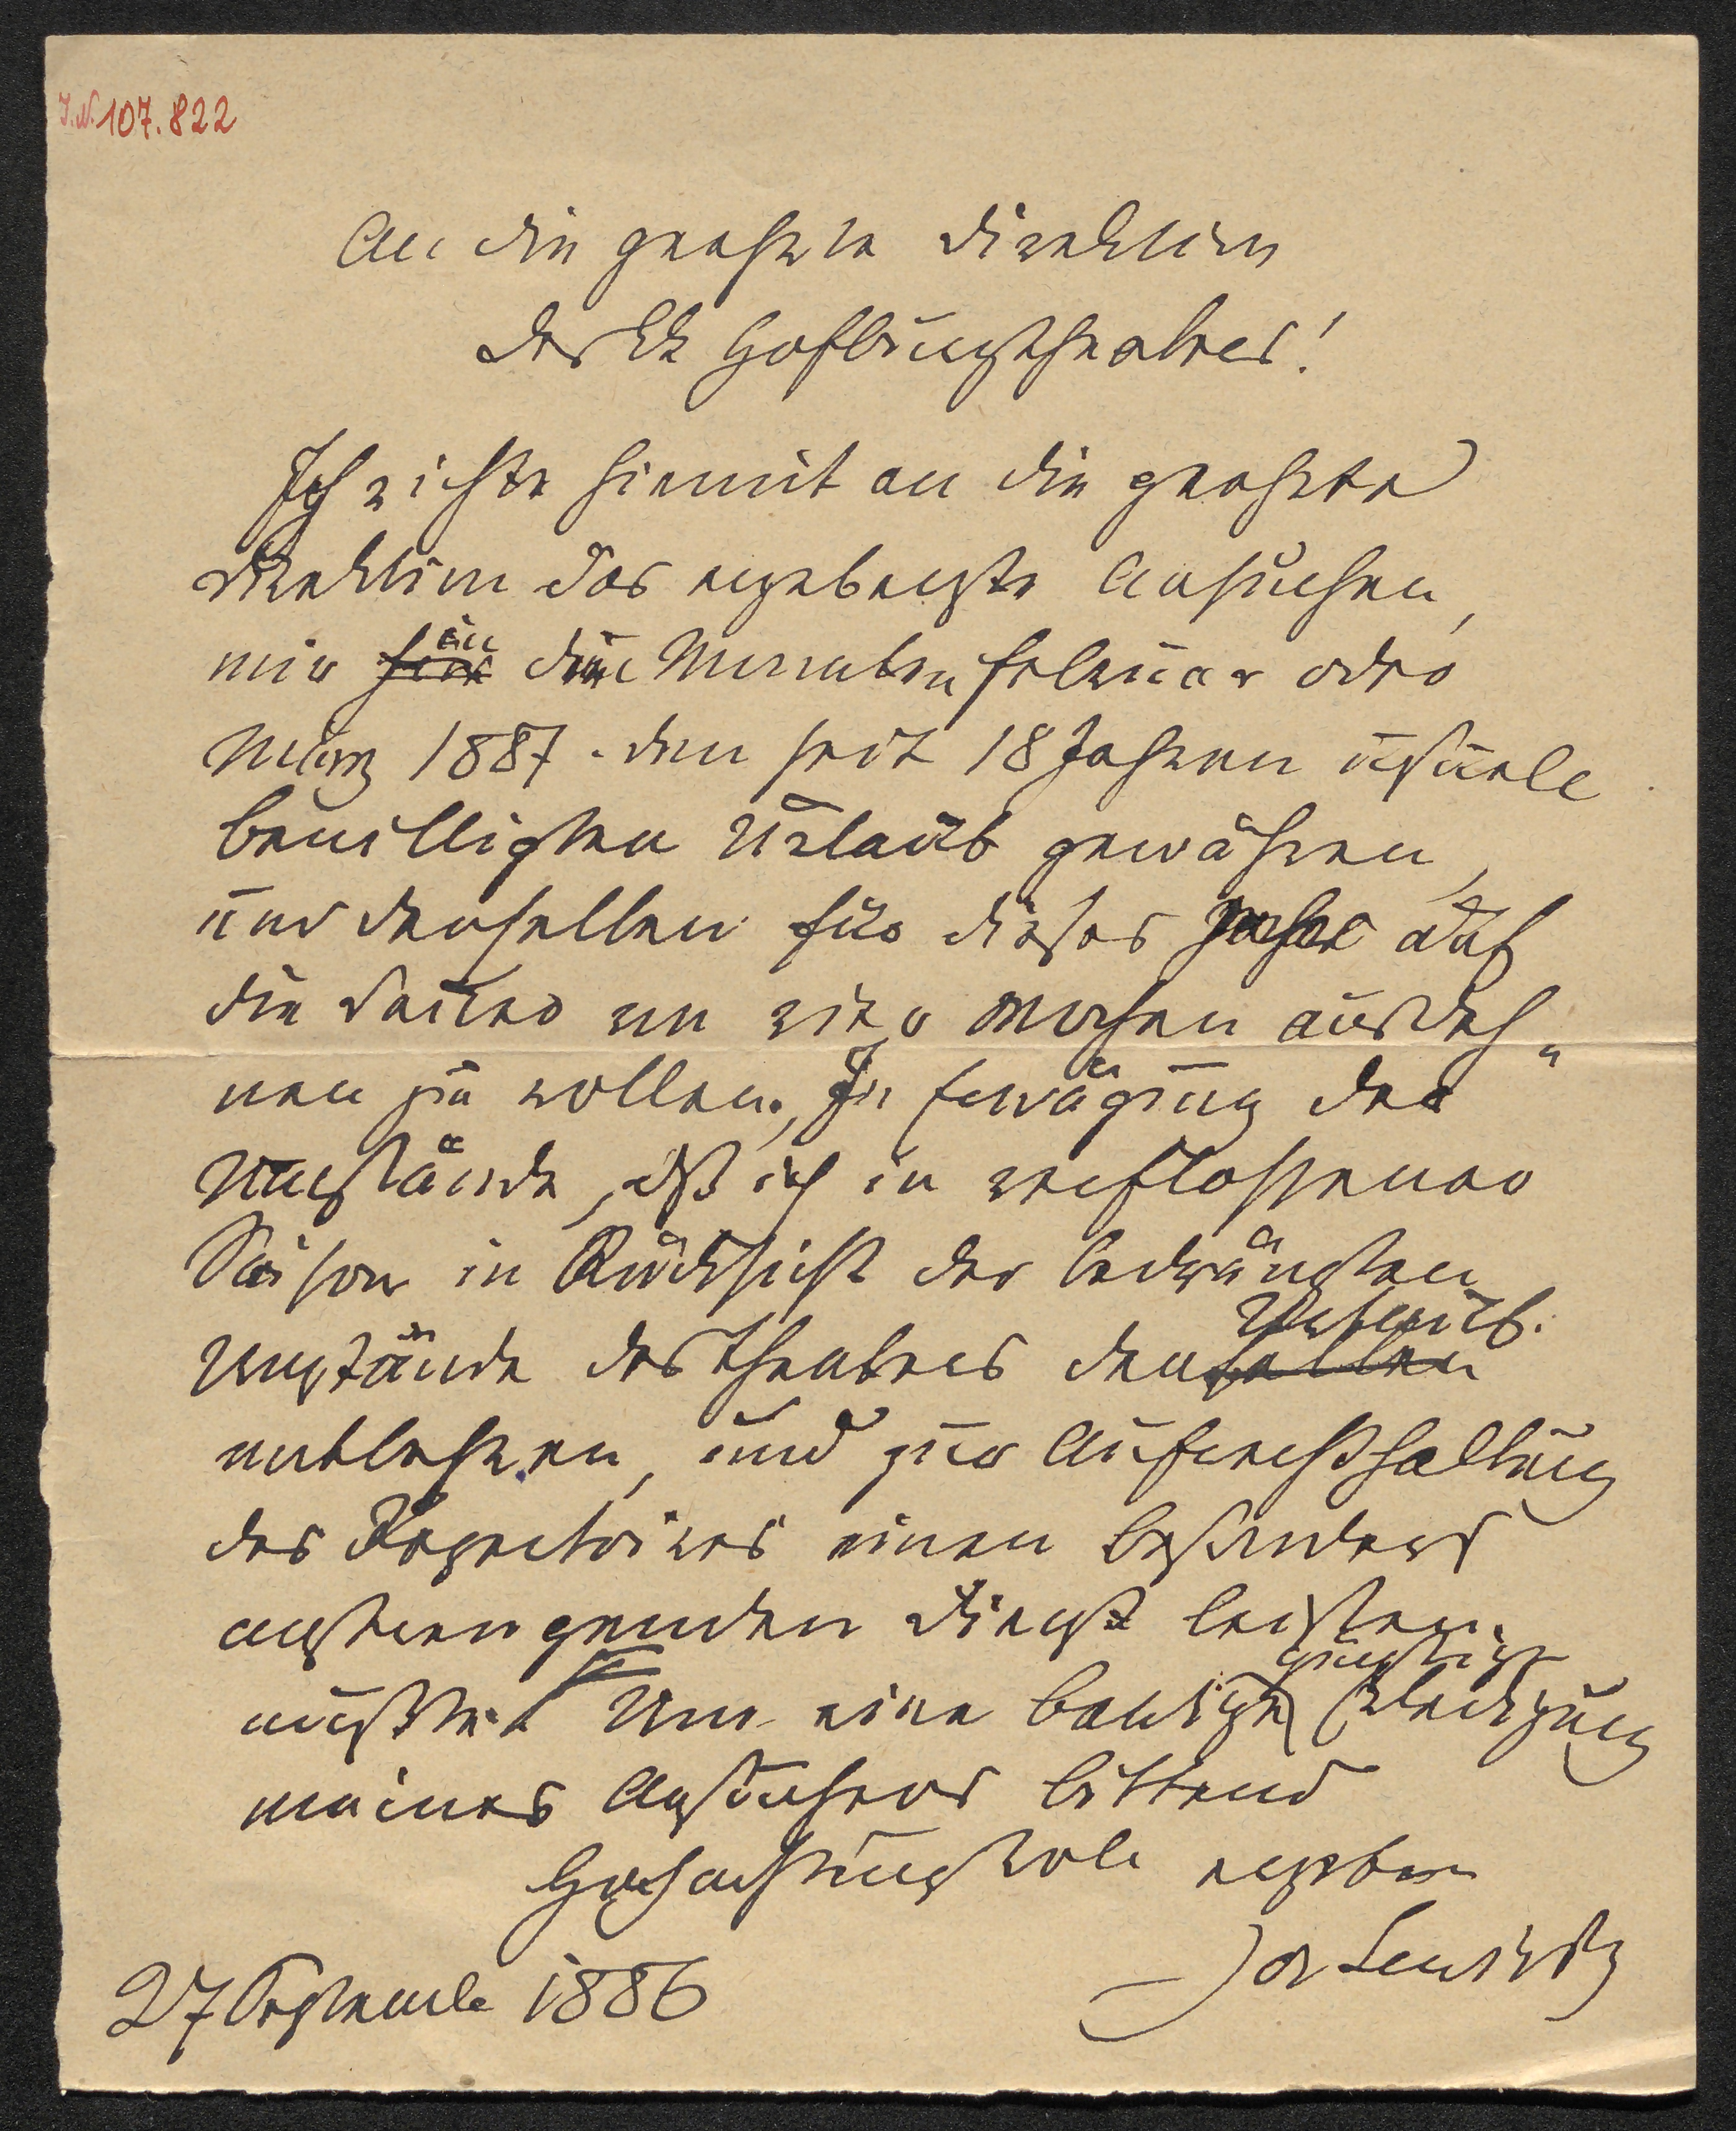 J.N. 107.822
An die geehrte Direktion
des k k Hofburgtheaters!
Ich richte hiemit an die geehrte
Direktion das ergebenste Ansuchen,
mir für im den Monaten Februar oder
März 1887. den seit 18 Jahren usuell
bewilligten Urlaub gewähren,
und denselben für dieses Jahr auf
die Dauer von vier Wochen ausdeh„
nen zu wollen., In Erwägung der
Umstände, dß ich in verflossener
Saison in Rücksicht der bedrängten
Umstände des Theaters denselben Urlaub.
entbehren, und zur Aufrechthaltung
des Repertoires einen besonders
anstrengenden Dienst leisten.
mußte. Um eine baldige günstige Erledigung
meines Ansuchens bittend
Hochachtungsvoll ergeben
Jos Lewinsky
27 September 1886